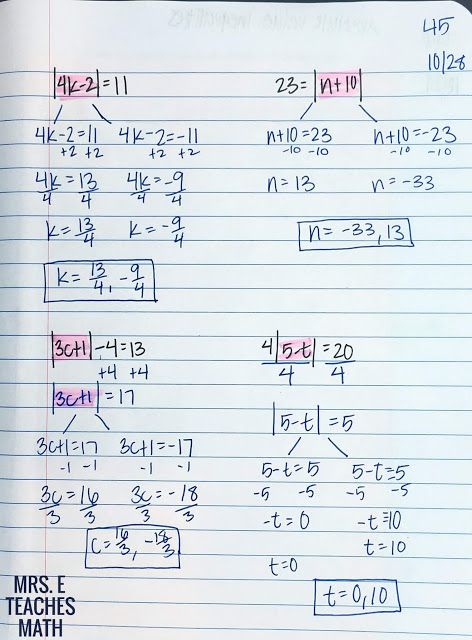 45
10/28
|4k-2|=11
4k-2=11 4k-2=-11
+2 +2 +2 +2
4k=13 4k=-9
4 4 4 4
k=13/4 k=-9/4
k=13/4, -9/4
23=|n+10|
n+10=23 n+10=-23
-10 -10 -10 -10
n=13 n=-33
n=-33, 13
|3c+1|-4=13
+4 +4
|3c+1|=17
3c+1=17 3c+1=-17
-1 -1 -1 -1
3c=16 3c=-18
3 3 3 3
c=16/3, -18/3
4|5-t|=20
4 4
|5-t|=5
5-t=5 5-t=-5
-5 -5 -5 -5
-t=0 -t=-10
t=10
t=0
t=0,10
MRS. E
TEACHES
MATH